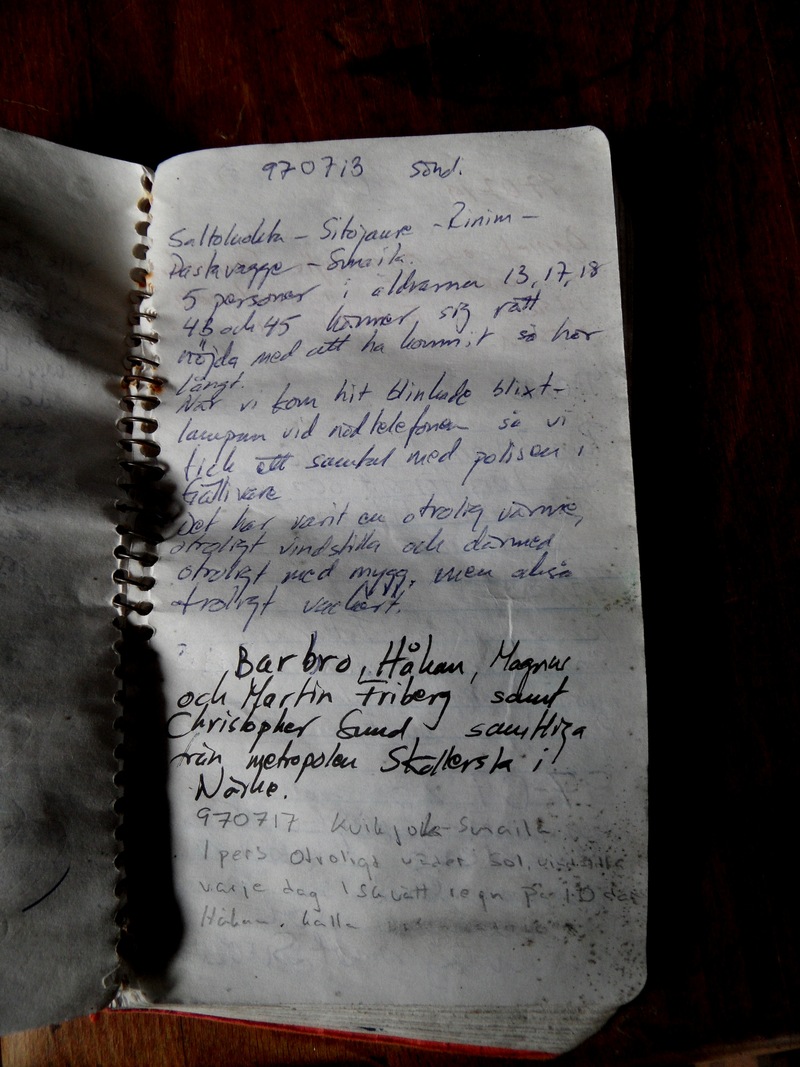 970713 sönd.
Saltoluokta - Sitojaure - Rinim -
Pastavagge - Smaila.
5 personer i åldrarna 13, 17, 18
43 och 45 känner sig rätt
nöjda med att ha kommit så här
långt.
När vi kom hit blinkade blixt-
lampan vid nödtelefonen så vi
fick ett samtal med polisen i
Gällivare
Det har varit en otrolig värme,
otroligt vindstilla och därmed
otroligt med mygg, men också
otroligt vackert.
Barbro, Håkan, Magnus
och Martin Friberg samt
Christopher Sund, samtliga
från metropolen Sköllersta i
Närke.
970717 Kvikkjokk-Smaila
1 pers Otroligt väder sol, vindstilla
varje dag 1 skvätt regn på 10 dar
Håkan.